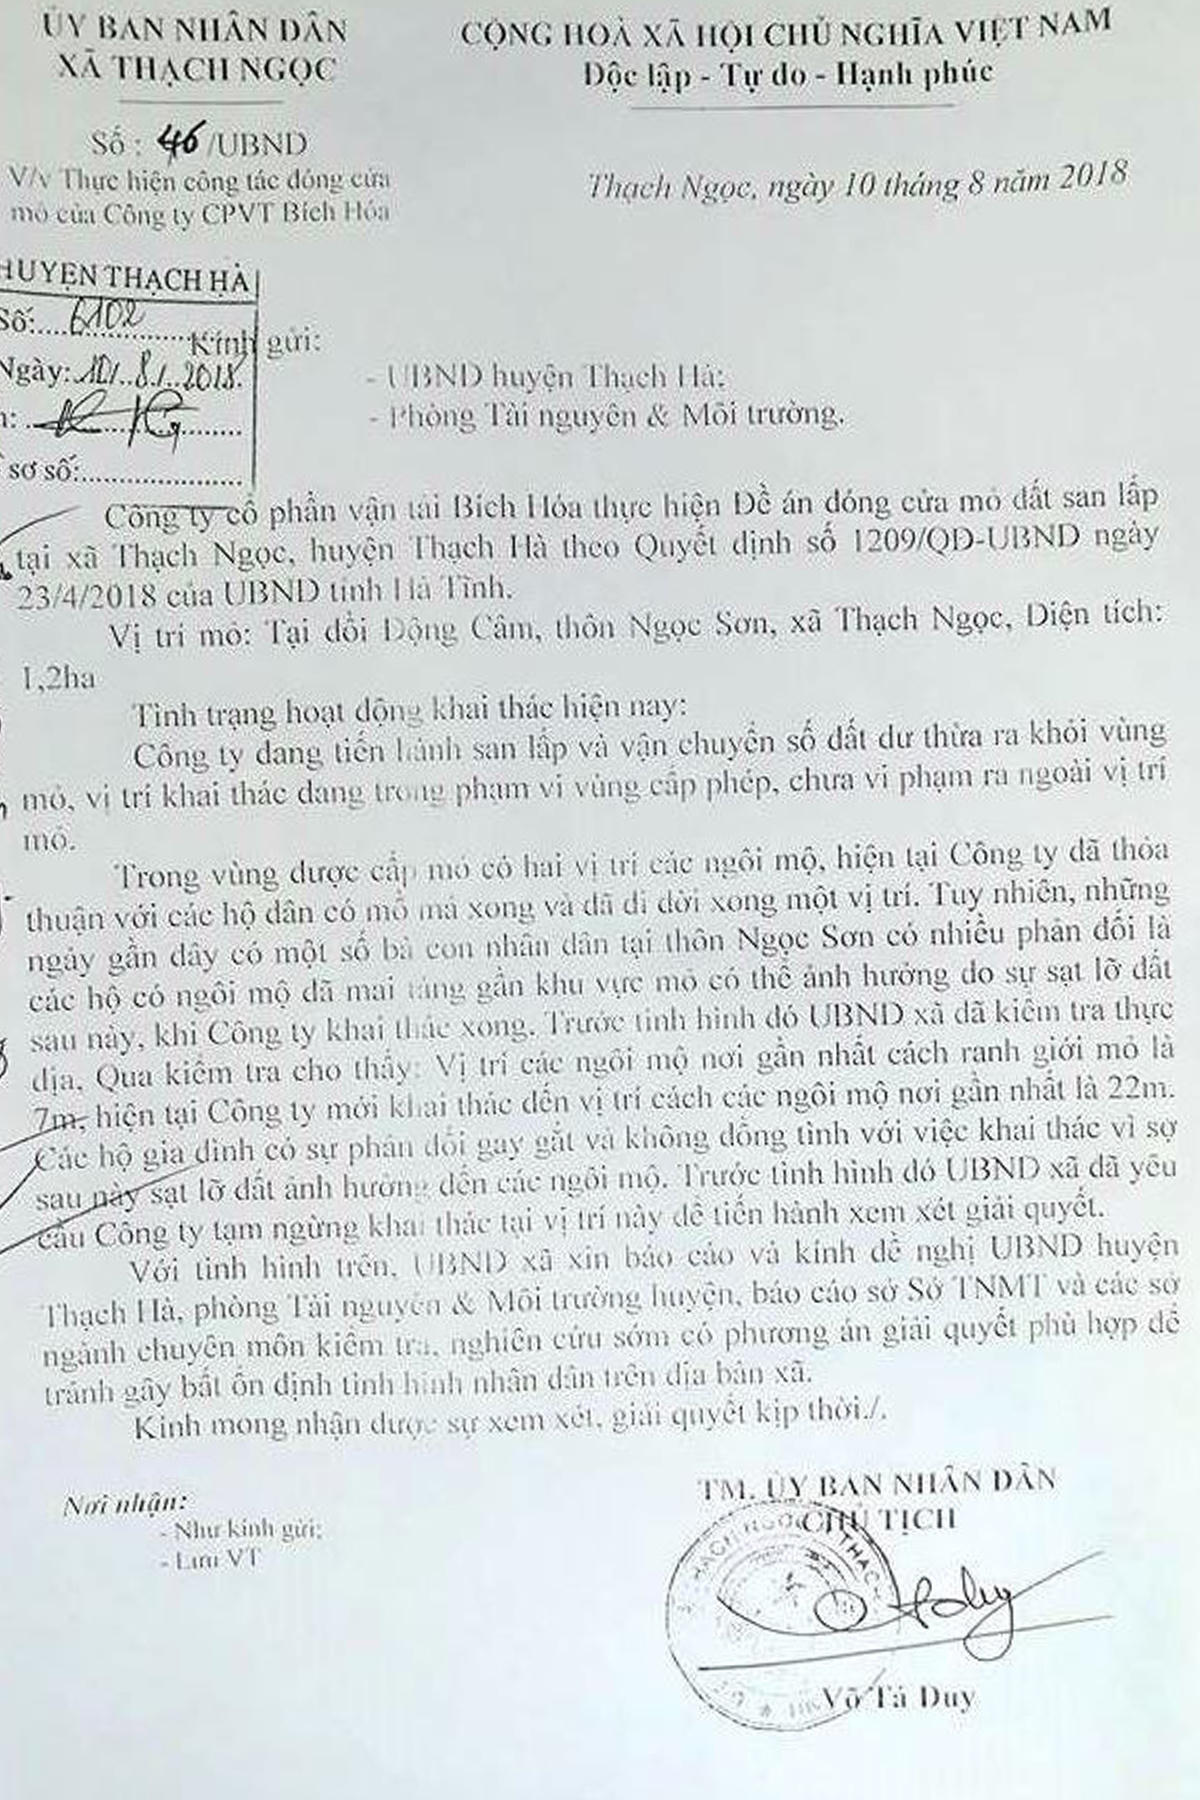 ỦY BAN NHÂN DÂN
XÃ THẠCH NGỌC
CỘNG HOÀ XÃ HỘI CHỦ NGHĨA VIỆT NAM
Độc lập - Tự do - Hạnh phúc
Số : 46/UBND
V/v Thực hiện công tác đóng cửa
mỏ của Công ty CPVT Bích Hóa
Thạch Ngọc, ngày 10 tháng 8 năm 2018
HUYỆN THẠCH HÀ
Số: 6102
Ngày: 10/ 8/ 2018
sơ số:
Kính gửi:
- UBND huyện Thạch Hà;
- Phòng Tài nguyên & Môi trường.
Công ty cổ phần vận tải Bích Hóa thực hiện Đề án đóng cửa mỏ đất san lấp
tại xã Thạch Ngọc, huyện Thạch Hà theo Quyết định số 1209/QĐ-UBND ngày
23/4/2018 của UBND tỉnh Hà Tĩnh.
Vị trí mỏ: Tại đồi Động Câm, thôn Ngọc Sơn, xã Thạch Ngọc, Diện tích:
1,2ha
Tình trạng hoạt động khai thác hiện nay:
Công ty đang tiến hành san lấp và vận chuyển số đất dư thừa ra khỏi vùng
mỏ, vị trí khai thác đang trong phạm vi vùng cấp phép, chưa vi phạm ra ngoài vị trí
mỏ.
Trong vùng được cấp mỏ có hai vị trí các ngôi mộ, hiện tại Công ty đã thỏa
thuận với các hộ dân có mồ mả xong và đã di dời xong một vị trí. Tuy nhiên, những
ngày gần đây có một số bà con nhân dân tại thôn Ngọc Sơn có nhiều phản đối là
các hộ có ngôi mộ đã mai táng gần khu vực mỏ có thể ảnh hưởng do sự sạt lỡ đất
sau này, khi Công ty khai thác xong. Trước tình hình đó UBND xã đã kiểm tra thực
địa, Qua kiểm tra cho thấy: Vị trí các ngôi mộ nơi gần nhất cách ranh giới mỏ là
7m, hiện tại Công ty mới khai thác đến vị trí cách các ngôi mộ nơi gần nhất là 22m.
Các hộ gia đình có sự phản đối gay gắt và không đồng tình với việc khai thác vì sợ
sau này sạt lỡ đất ảnh hưởng đến các ngôi mộ. Trước tình hình đó UBND xã đã yêu
cầu Công ty tạm ngừng khai thác tại vị trí này để tiến hành xem xét giải quyết.
Với tình hình trên, UBND xã xin báo cáo và kính đề nghị UBND huyện
Thạch Hà, phòng Tài nguyên & Môi trường huyện, báo cáo sở Sở TNMT và các sở
ngành chuyên môn kiểm tra, nghiên cứu sớm có phương án giải quyết phù hợp để
tránh gây bất ổn định tình hình nhân dân trên địa bàn xã.
Kính mong nhận được sự xem xét, giải quyết kịp thời./.
Nơi nhận:
- Như kính gửi;
- Lưu VT
TM. ỦY BAN NHÂN DÂN
CHỦ TỊCH
Võ Tá Duy